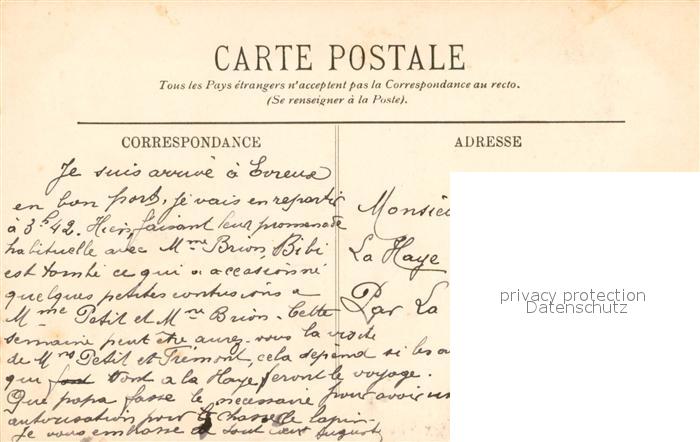 CARTE POSTALE
Tous les Pays étrangers n'acceptent pas la Correspondance au recto.
(Se renseigner à la Poste).
CORRESPONDANCE
ADRESSE
Je suis arrivé à Evreux
en bon port, je vais en repartir
à 3h 42. Hier, faisant leur promenade
habituelle avec Mme Brion, Bibi
est tombé ce qui a occasionné
quelques petites contusions a
Mme Petit et Mme Brion. Cette
semaine peut être aurez-vous la visite
de Mrs Petit et Frémont, cela dépend si les
qui sont a la Haye feront le voyage.
Que papa fasse le nécessaire pour avoir
autorisation pour la chasse le lapin
Je vous embrasse de tout cœur August
Monsie
La Haye
Par La
privacy protection
Datenschutz